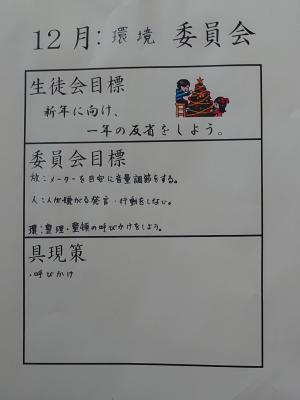 12月:環境 委員会
生徒会目標
新年に向け、
一年の反省をしよう。
委員会目標
放:メーターを目安に音量調節をする。
人:人が嫌がる発言・行動をしない。
環:整理・整頓の呼びかけをしよう。
具現策
・呼びかけ